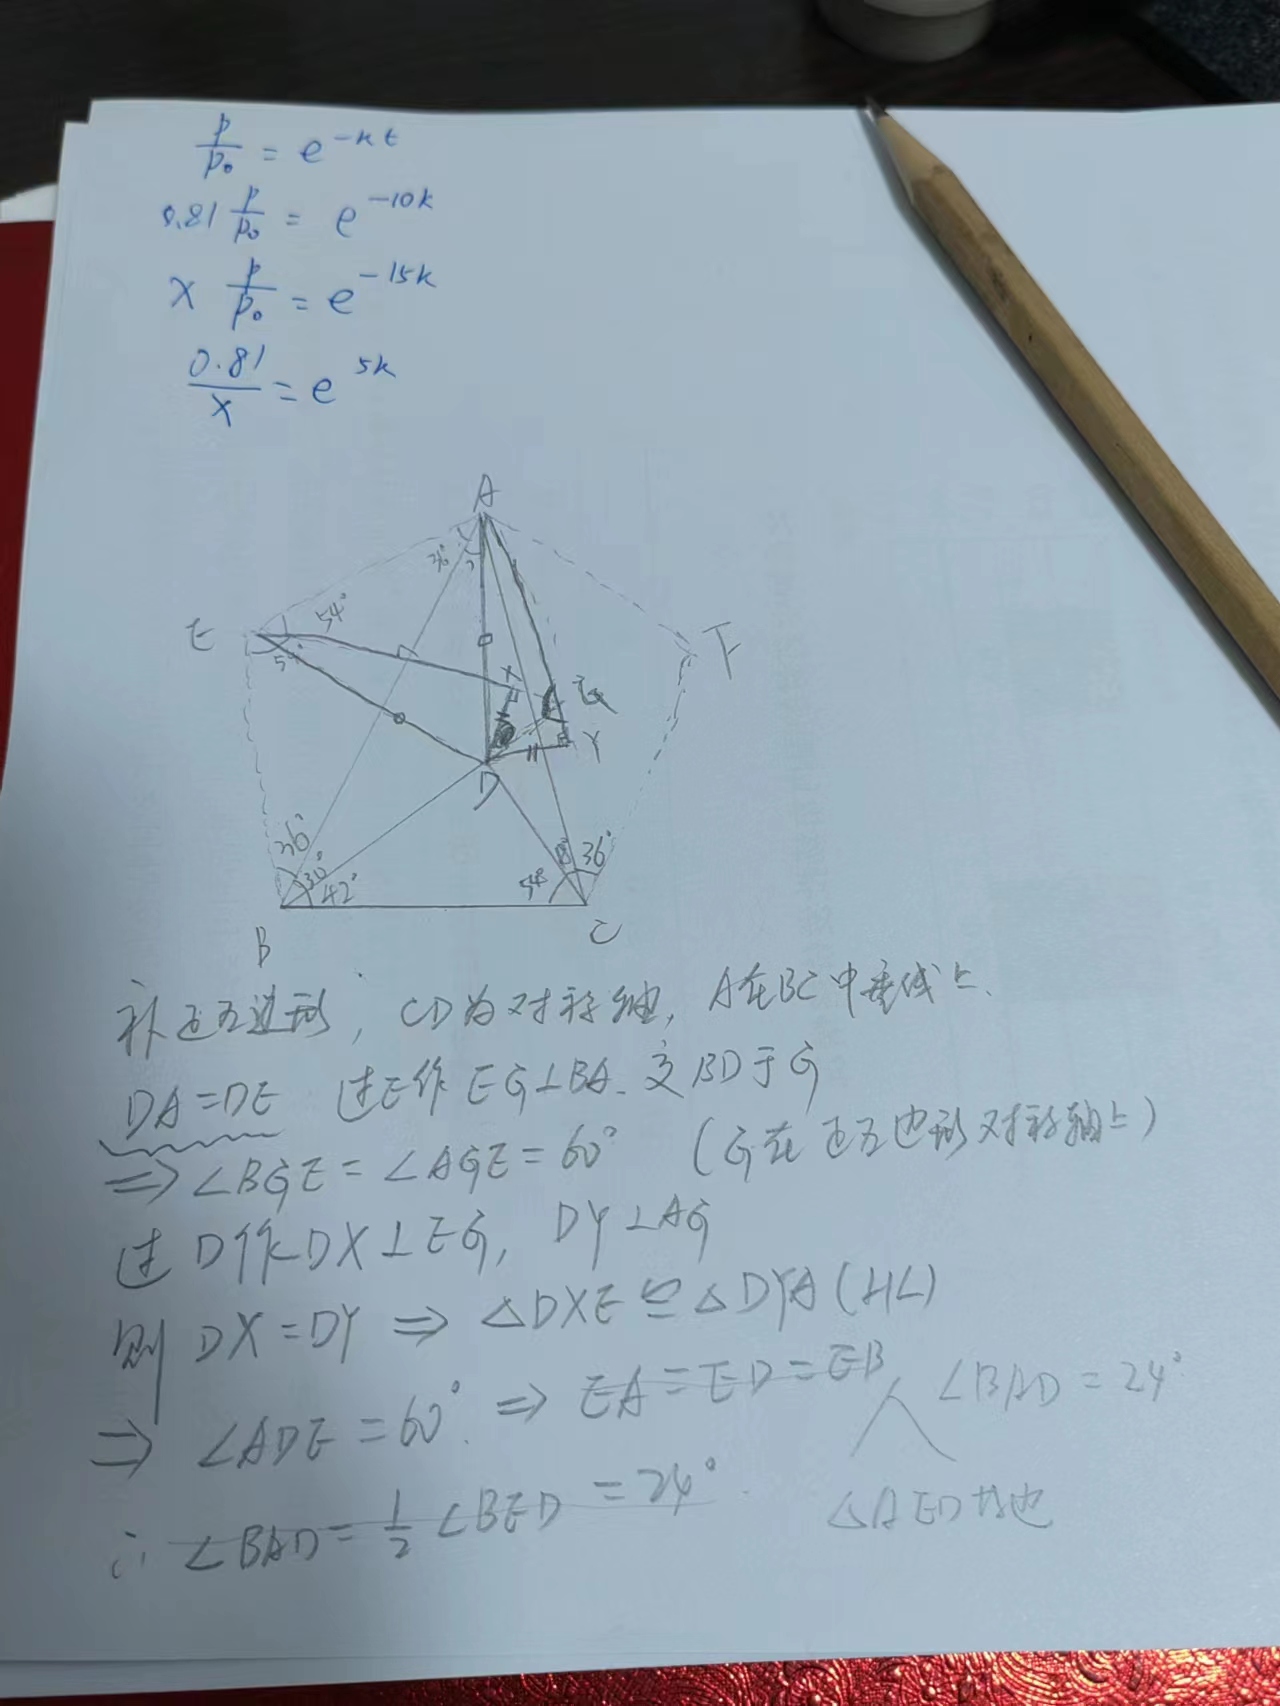 p/p₀ = e^{-kt}
0.81 p/p₀ = e^{-10k}
x p/p₀ = e^{-15k}
0.81/x = e^{5k}
A
36°
?
E
54°
54°
F
X
G
Y
D
36°
30°
42°
54°
18°
36°
B
C
补正五边形, CD为对称轴, A在BC中垂线上.
DA=DE 过E作EG⊥BA. 交BD于G
⇒∠BGE=∠AGE=60° (G在正五边形对称轴上)
过D作DX⊥EG, DY⊥AG
则DX=DY ⇒ △DXE≌△DYA(HL)
⇒ ∠ADE=60°. ⇒ EA=ED=EB ∠BAD=24°
∴ ∠BAD=1/2∠BED=24°. △AED